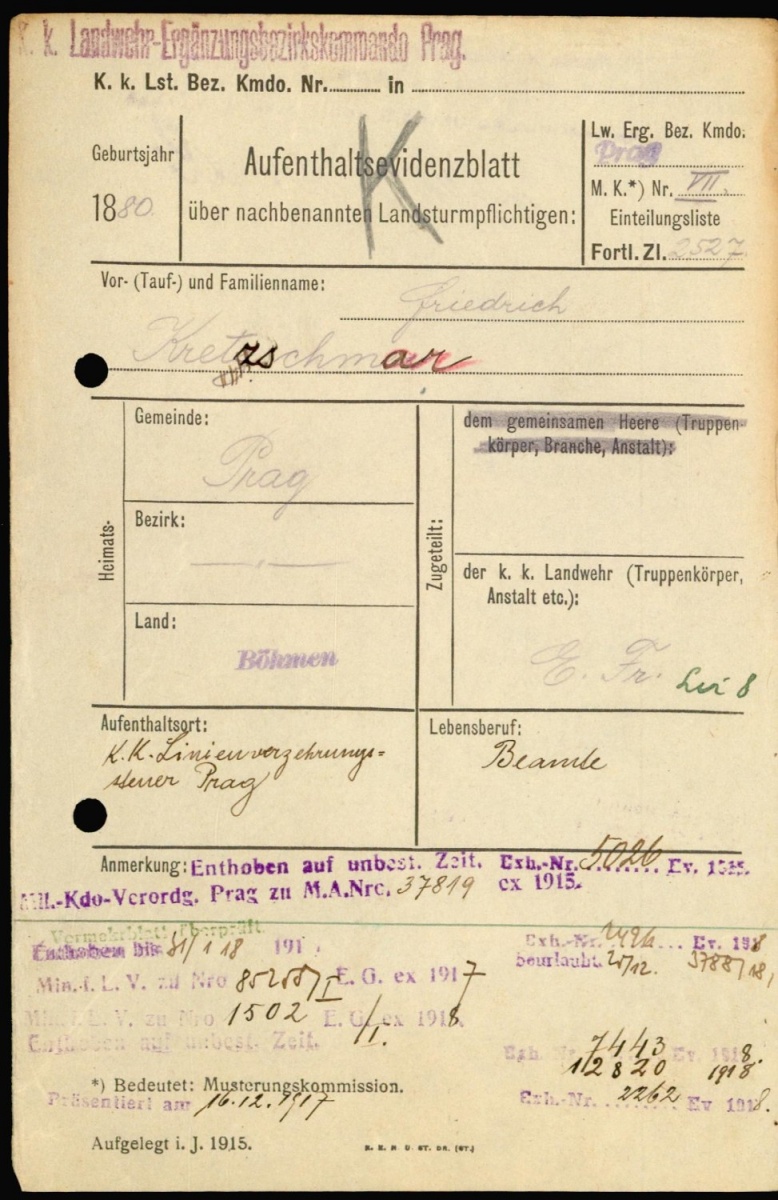 k. k. Landwehr-Ergänzungsbezirkskommando Prag.
K. k. Lst. Bez. Kmdo. Nr. in
Geburtsjahr
1880
K
Aufenthaltsevidenzblatt
über nachbenannten Landsturmpflichtigen:
Lw. Erg. Bez. Kmdo.
Prag
M. K.*) Nr. VII.
Einteilungsliste
Fortl. Zl. 2527
Vor- (Tauf-) und Familienname:
Friedrich
Kretzschmar
Heimats-
Gemeinde:
Prag
Bezirk:
Land:
Böhmen
Zugeteilt:
dem gemeinsamen Heere (Truppen-
körper, Branche, Anstalt):
der k. k. Landwehr (Truppenkörper,
Anstalt etc.):
E. Fr. 8
Aufenthaltsort:
K. K. Linienverzehrungs=
steuer Prag
Lebensberuf:
Beamte
Anmerkung: Enthoben auf unbest. Zeit. Exh.-Nr. 5026 Ev. 1915.
Mil.-Kdo-Verordg. Prag zu M.A.Nro. 37819 ex 1915.
Vormerkblatt überprüft.
Enthoben bis 31/1 18 191
Exh.-Nr. Ev. 1918
beurlaubt
Min. f. L. V. zu Nro E. G. ex 1917
Min. f. L. V. zu Nro 1502 E. G. ex 1918.
Enthoben auf unbest. Zeit. /II.
Exh. Nr. 7443 Ev. 1918.
12820 1918.
*) Bedeutet: Musterungskommission.
Präsentiert am 16.12.1917
Exh.-Nr. 2262 Ev 1918.
Aufgelegt i. J. 1915.
K. K. H U. ST. DR. (ST.)